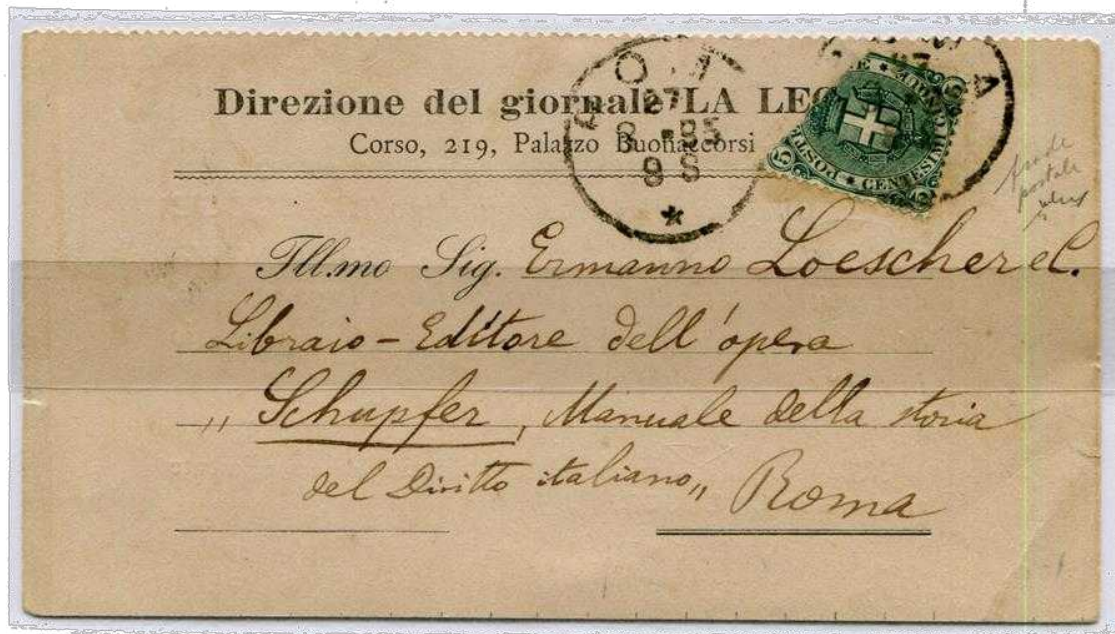 Direzione del giornale LA LEG
Corso, 219, Palazzo Buonaccorsi
ROMA
27
8 - 95
9 S
*
POSTE * CENTESIMI CINQUE *
5
Ill.mo Sig. Ermanno Loescher e C.
Libraio - Editore dell'opera
„ Schupfer, Manuale della storia
del Diritto italiano „ Roma
frode
postale